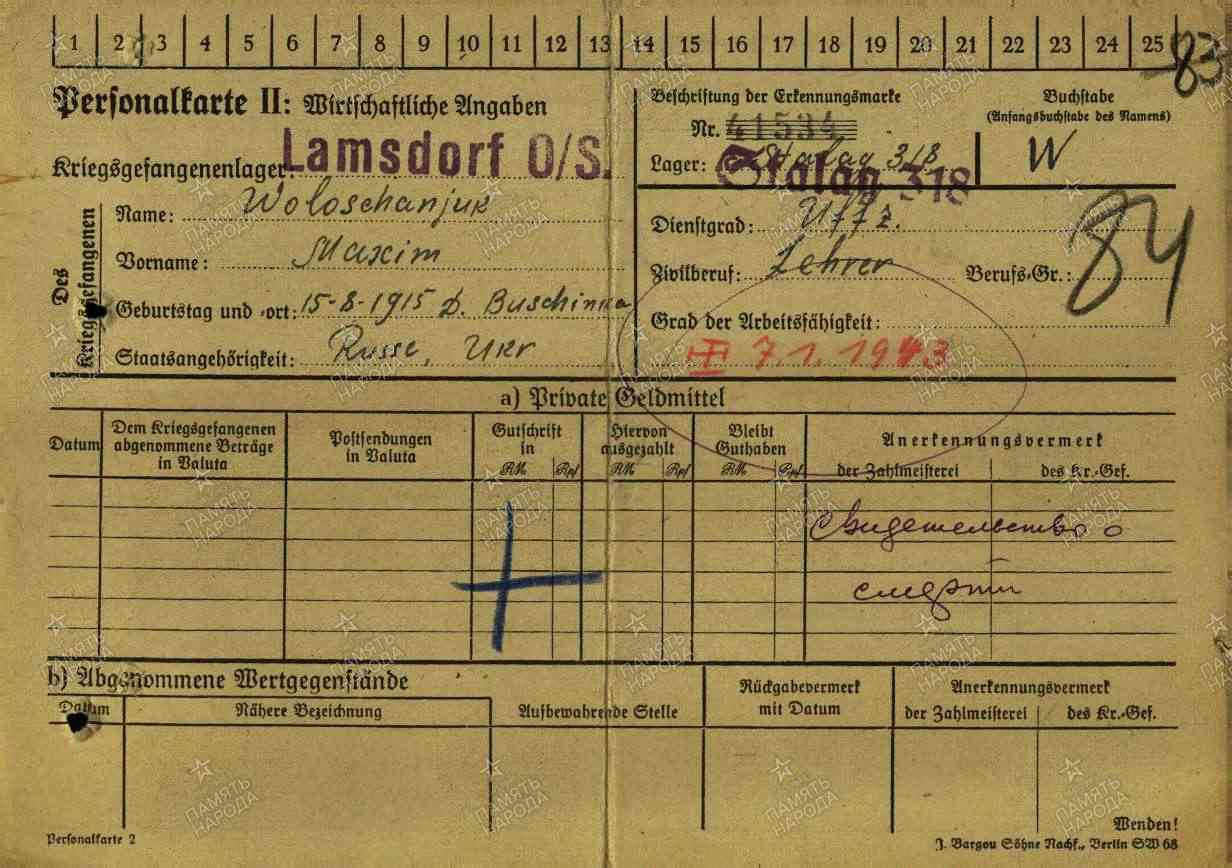 1 2 3 4 5 6 7 8 9 10 11 12 13 14 15 16 17 18 19 20 21 22 23 24 25
83
Personalkarte II: Wirtschaftliche Angaben
Kriegsgefangenenlager: Lamsdorf O/S.
Des Kriegsgefangenen
Name: Woloschanjuk
Vorname: Maxim
Geburtstag und -ort: 15-8-1915 D. Buschinka
Staatsangehörigkeit: Russe, Ukr
Beschriftung der Erkennungsmarke
Nr. 41534
Lager: Stalag 318
Stalag 318
Buchstabe
(Anfangsbuchstabe des Namens)
W
Dienstgrad: Uffz.
Zivilberuf: Lehrer Berufs-Gr.: 84
Grad der Arbeitsfähigkeit:
III 7.1.1943
a) Private Geldmittel
Datum
Dem Kriegsgefangenen abgenommene Beträge in Valuta
Postsendungen in Valuta
Gutschrift in
RM Rpf
Hiervon ausgezahlt
RM Rpf
Bleibt Guthaben
RM Rpf
Anerkennungsvermerk
der Zahlmeisterei des Kr.-Gef.
свидетельство о
смерти
b) Abgenommene Wertgegenstände
Datum
Nähere Bezeichnung
Aufbewahrende Stelle
Rückgabevermerk mit Datum
Anerkennungsvermerk
der Zahlmeisterei des Kr.-Gef.
Wenden!
Personalkarte 2
J. Bargou Söhne Nachf., Berlin SW 68
ПАМЯТЬ НАРОДА